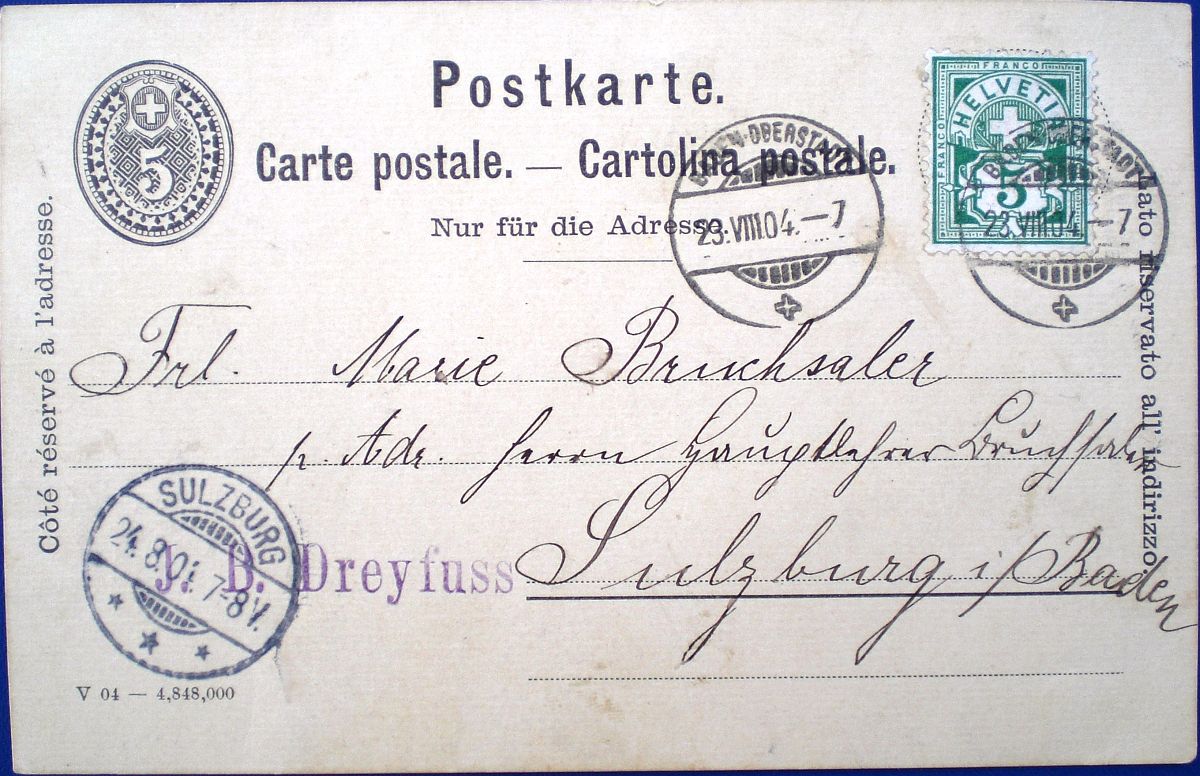 5
Postkarte.
Carte postale. — Cartolina postale.
Nur für die Adresse.
FRANCO
FRANCO
HELVETIA
5
BADEN-OBERSTADT
23.VIII.04.—7
BADEN-OBERSTADT
23.VIII.04.—7
Côté réservé à l'adresse.
Lato riservato all' indirizzo.
Frl. Marie Bruchsaler
p. Adr. Herrn Hauptlehrer Bruchsaler
Sulzburg i/Baden
J. B. Dreyfuss
SULZBURG
24.8.04. 7-8V.
V 04 — 4,848,000